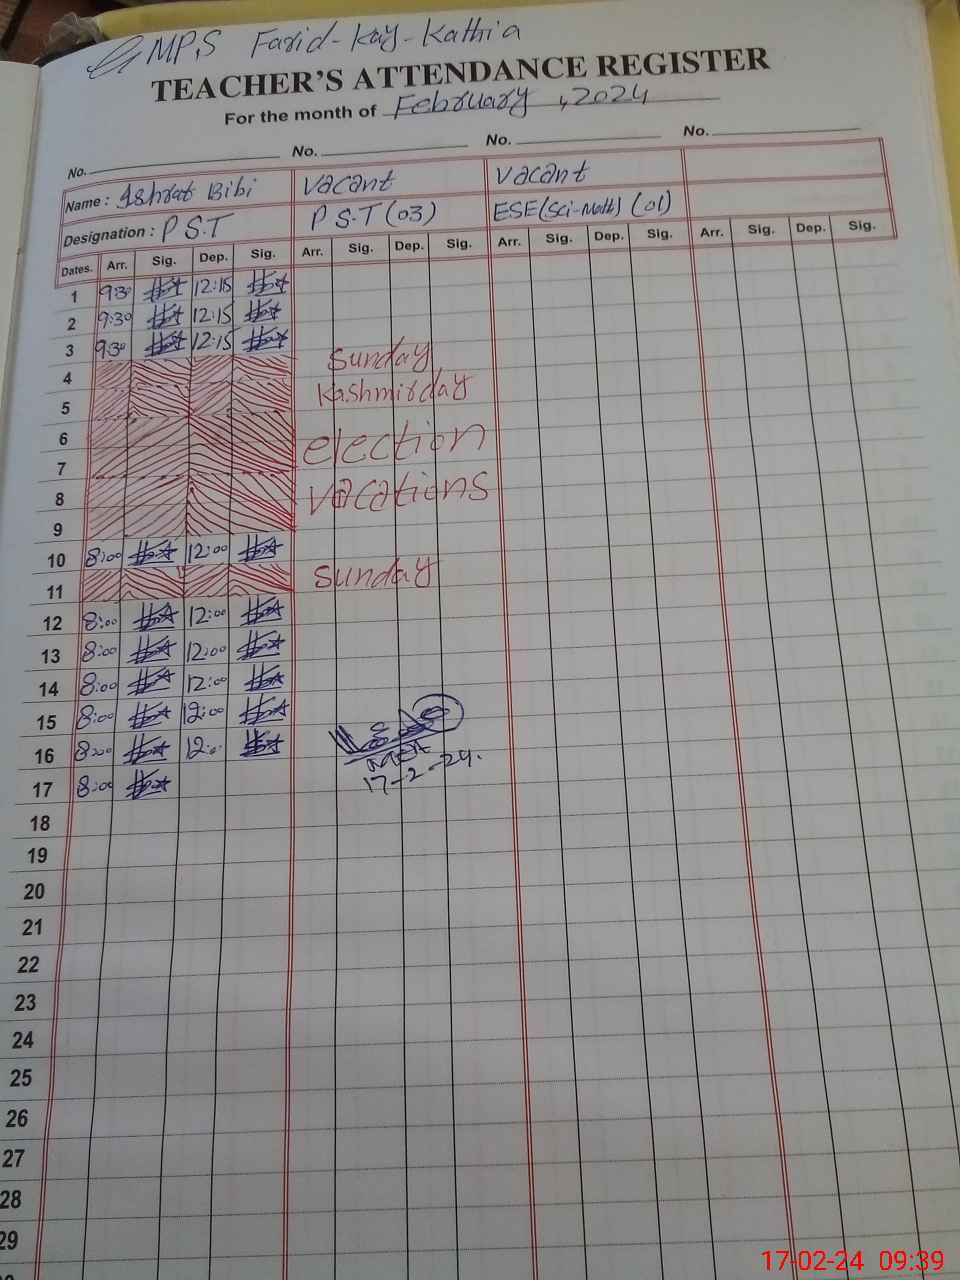 GMP,S Farid-Kay-Kathia
TEACHER'S ATTENDANCE REGISTER
For the month of February, 2024
No. No. No. No.
Name : Ishrat Bibi Vacant Vacant
Designation : P S.T P S.T (03) ESE(Sci-Math) (01)
Dates. Arr. Sig. Dep. Sig. Arr. Sig. Dep. Sig. Arr. Sig. Dep. Sig. Arr. Sig. Dep. Sig.
1 9:30 12:15
2 9:30 12:15
3 9:30 12:15
4 Sunday
5 Kashmir day
6 election
7
8 vacations
9
10 8:00 12:00
11 Sunday
12 8:00 12:00
13 8:00 12:00
14 8:00 12:00
15 8:00 12:00
16 8:00 12:00
MEA
17 8:00 17-2-24.
18
19
20
21
22
23
24
25
26
27
28
29
17-02-24 09:39